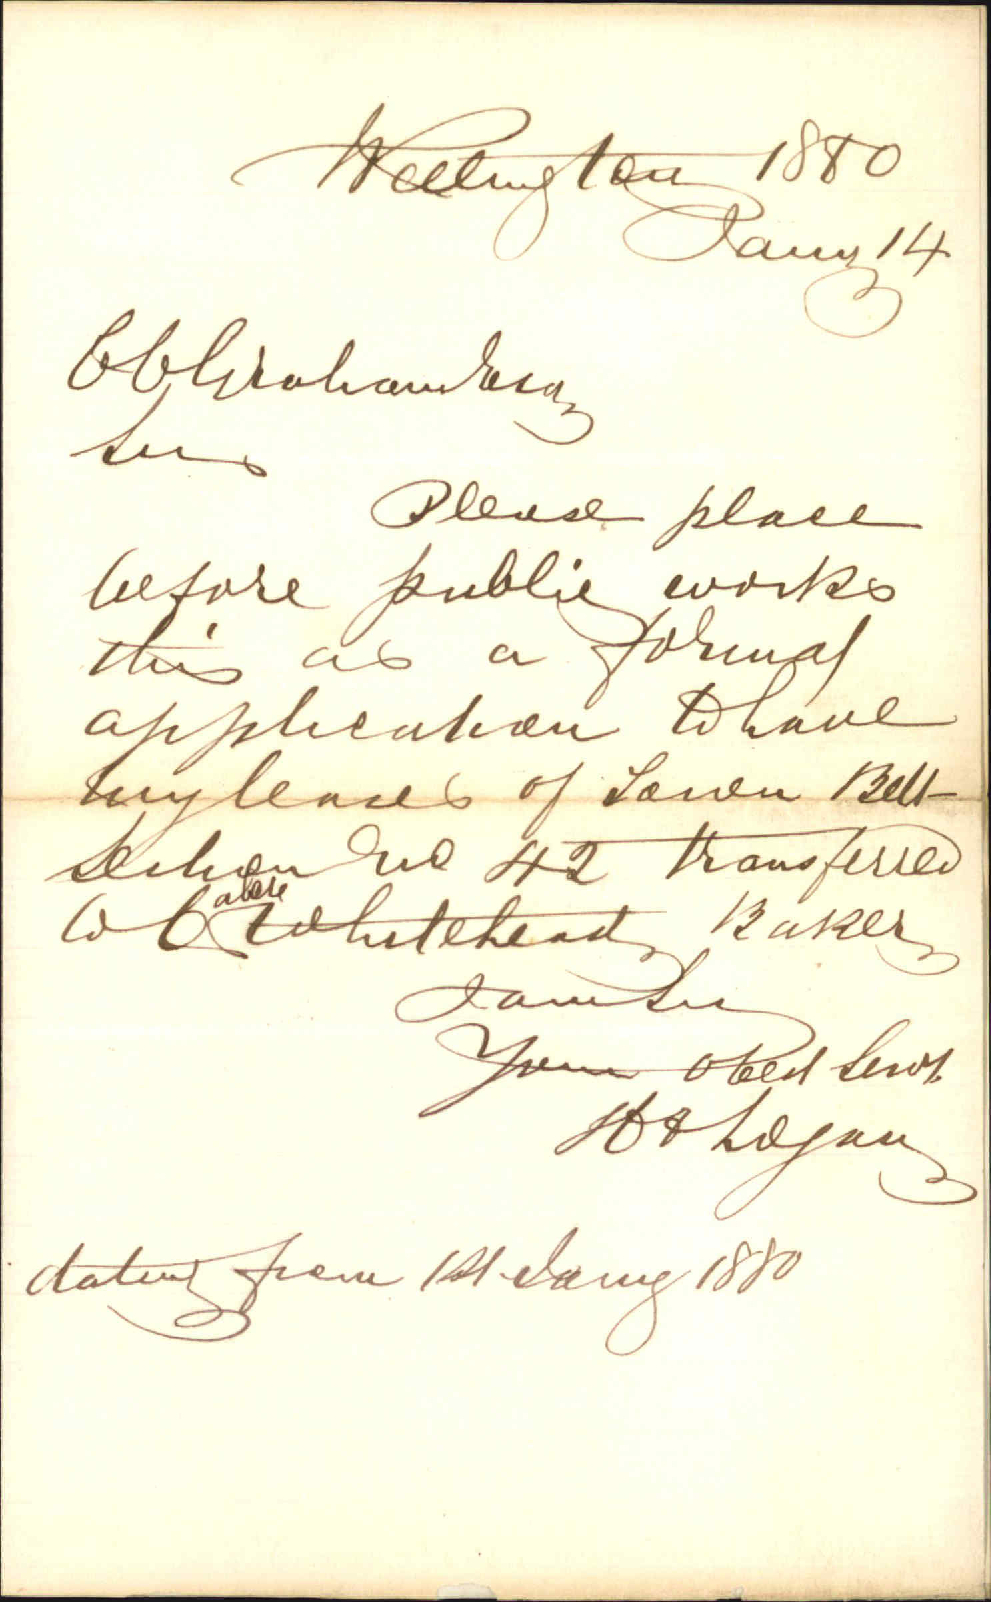 Wellington 1880
Jany 14
C C Graham Esq
Sir
Please place
before public works
this as a formal
application to have
my leases of Town Belt
Section No 42 transferred
to C Whitehead Baker
I am Sir
Your Obed Servt
H F Logan
dating from 1st Jany 1880